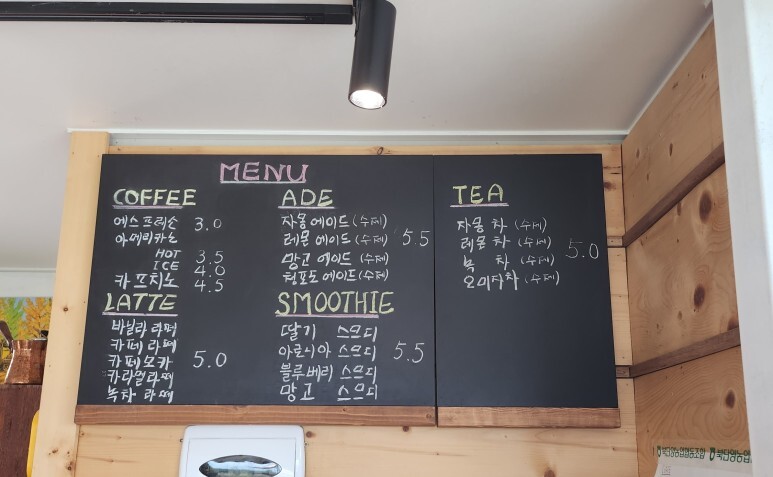 MENU
COFFEE
에스프레소 3.0
아메리카노
HOT 3.5
ICE 4.0
카프치노 4.5
LATTE
바닐라 라떼
카페 라떼
카페모카 5.0
카라멜라떼
녹차 라떼
ADE
자몽에이드 (수제)
레몬에이드 (수제) 5.5
망고에이드 (수제)
청포도에이드 (수제)
SMOOTHIE
딸기 스무디
아로니아 스무디 5.5
블루베리 스무디
망고 스무디
TEA
자몽 차 (수제)
레몬 차 (수제) 5.0
녹 차 (수제)
오미자차 (수제)
북단양농업협동조합 북단양농업